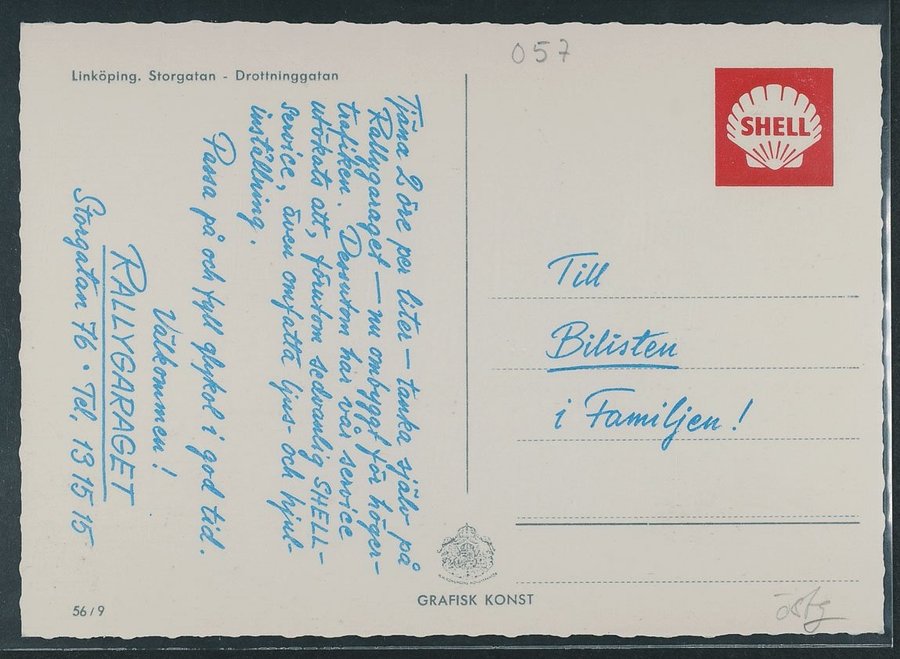 057
Linköping. Storgatan - Drottninggatan
SHELL
Tjäna 2 öre per liter — tanka själv på
Rallygaraget — nu ombyggt för höger-
trafiken. Dessutom har vår service
utökats att, förutom sedvanlig SHELL-
service, även omfatta ljus- och hjul-
inställning.
Passa på och fyll glykol i god tid.
Välkommen!
RALLYGARAGET
Storgatan 76 · Tel. 13 15 15
Till
Bilisten
i Familjen!
GRAFISK KONST
56/9
östg